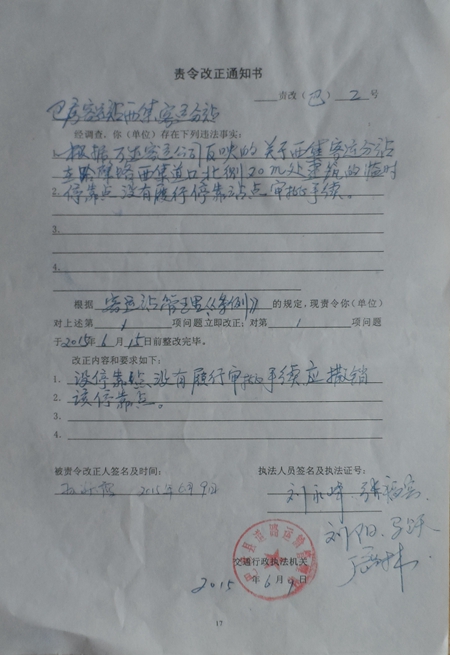 责令改正通知书
责改（巴）2号
巴彦客运站西集客运分站
经调查，你（单位）存在下列违法事实：
1、根据万达客运公司反映的关于西集客运分站
在哈 路西集道口北侧20m处建筑的临时
2、停靠点没有履行停靠站点审批手续。
3、
4、
根据 客运站管理《条例》 的规定，现责令你（单位）
对上述第 1 项问题立即改正；对第 1 项问题
于2015年6月15日前整改完毕。
改正内容和要求如下：
1、设停靠点没有履行审批手续应撤销
2、该停靠点。
3、
4、
被责令改正人签名及时间： 执法人员签名及执法证号：
2015年6月9日
刘永峰
刘阳
交通行政执法机关
2015年6月9日
17